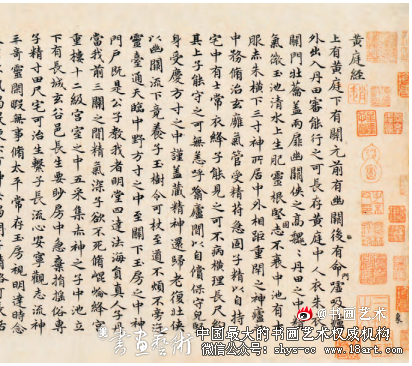 黄庭經
上有黄庭下有關元前有幽闕後有命門噓吸廬
外出入丹田審能行之可長存黄庭中人衣朱衣
關門壯籥盖兩扉幽闕俠之高巍巍丹田之中精
氣微玉池清水上生肥靈根堅志不衰中池有士
服赤朱横下三寸神所居中外相距重閉之神廬之
中務脩治玄膺氣管受精符急固子精以自持
宅中有士常衣絳子能見之可不病横理長尺約
其上子能守之可無恙呼噏廬間以自償保守完堅
身受慶方寸之中謹盖藏精神還歸老復壯俠
以幽闕流下竟養子玉樹令可杖至道不煩不旁迕
靈臺通天臨中野方寸之中至關下玉房之中神
門户既是公子教我者明堂四達法海員真人子丹
當我前三關之間精氣深子欲不死脩崐崘絳宫
重樓十二級宫室之中五采集赤神之子中池立
下有長城玄谷邑長生要眇房中急棄捐摇俗專
子精寸田尺宅可治生繫子長流心安寧觀志流神
三奇靈閑暇無事脩太平常存玉房視明達時念
書画藝術
中国最大的书画艺术权威机构
微信公众号:shys-cc www.18art.com